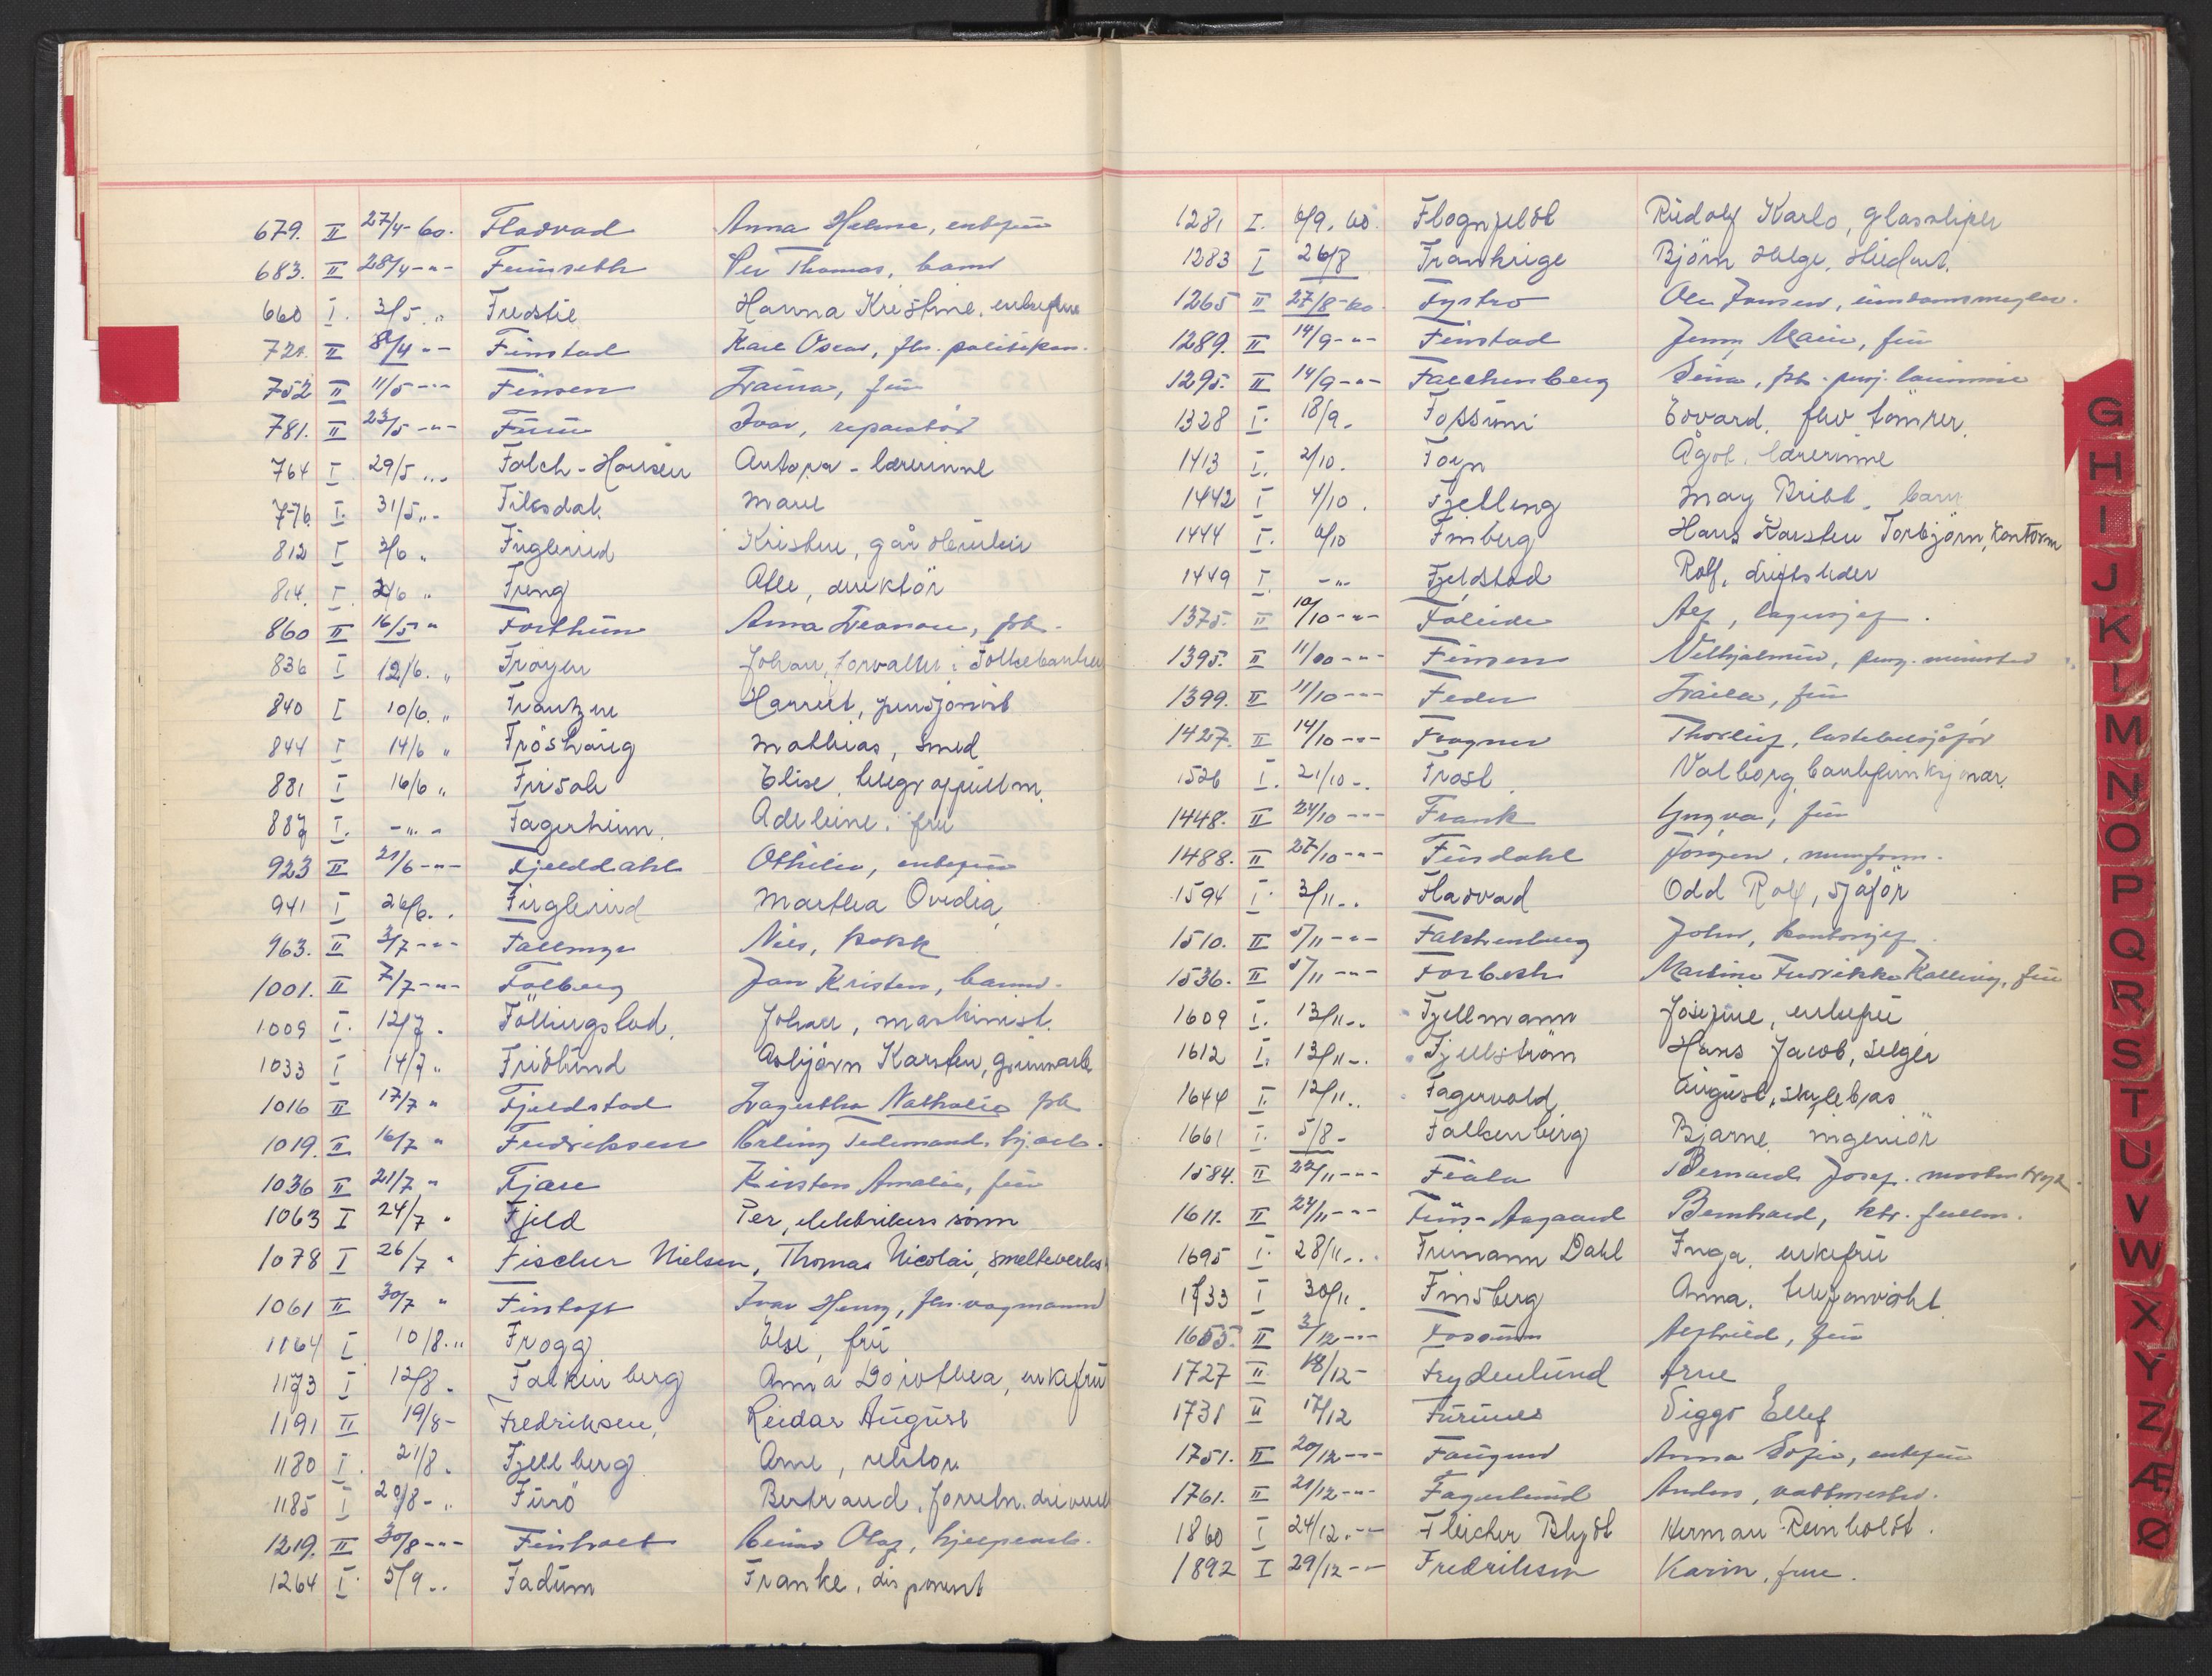 679. II 27/4-60. Fladvad Anna Helene, enkefrue
683. II 28/4 -"- Per Thomas, barn
660 I. 3/5 " Fredstie Hanna Kristine, enkefrue
721. II 8/4 -"- Finstad Karl Oscar, fhv. politikon.
752 II 11/5 -"- Finsen fru
781. II 23/5 -"- Ivar, reparatör
764 I 29/5 -"- Falch-Hansen lærerinne
776 I. 31/5 "- Marie
812 I 3/6 " Fuglerud
814. I. 2/6 " Freng Atle, direktör
860 II 16/5 " Forthun Anna
836 I 12/6. " Frøyen Johan, forvalter i Folkebanken
840 I 10/6. " Frantzen Harriet, pensjonist
844 I 14/6 " Fröshaug Mathias, smed
881 I 16/6 " Frisak Elise, telegraffullm.
887 I. -"- Fagerheim Adeleine, fru
923 II 21/6 -"- Fjelddahl Othilie, enkefrue
941 I 26/6. " Fuglerud Marthea Ovidia
963. II 3/7 -"- Fallmyr Nils, kokk
1001. II 7/7 -"- Folberg Jan Kristen, barn.
1009 I. 12/7 " Föllingstad, Johan, maskinist.
1033 I 14/7 " Fridlund Asbjørn Karsten, grunnarb
1016 II 17/7 " Fjeldstad Lagertha Nathalie frk
1019. II 16/7 " Fredriksen Erling Tidemand, hj.arb.
1036 II 21/7 " Fjære Kirsten Amalie, fru
1063 I 24/7 " Fjeld Per, elektrikers sønn
1078 I 26/7 " Fischer Nielsen, Thomas Nicolai, smelteverks
1061 II 30/7 " Finstoft Ivar Henry, fhv. vognmann
1164 I 10/8. " Frogg Else, fru
1173 I 12/8 " Falkenberg Anna Dorothea, enkefru
1191 II 19/8- Fredriksen, Reidar August
1180 I. 21/8. Fjellberg Arne, rektor
1185 I 20/8 - " Furö Bertrand, forretn.drivende
1219. II 30/8 -"- Olaf, hjelpearb.
1264 I. 5/9 " Fadum Franke, disponent
1281 I. 6/9. 60. Flognfeldt Rudolf Karlo, glassliper
1283 I 26/8 Frankrige Björn Helge, student.
1265 II 27/8-60. Fystro Ole Jonsen, eiendomsmegler.
1289. II 14/9 -"- Finstad Jenny Marie, fru
1295. II 14/9 -"- Falchenberg
1328 I. 18/9- Fossum Edvard, fhv tömrer.
1413 I. 2/10. Foyn Ågot, lærerinne
1442 I 4/10. Fjelleng May Britt, barn
1444 I. 6/10 Finberg Hans Karsten Torbjörn, kontorm
1449 I. -"- Fjeldstad Rolf, driftsleder
1375. II 10/10 -"- Foleide Alf, lagersjef.
1395. II 11/10 -"- Finsen Vilhjalmur, pens. minister
1399. II 11/10 -"- Feder Laila, fru
1427. II 14/10 -"- Frogner Thorleif, lastebilsjåfør
1526 I. 21/10 -. Frost Valborg, bankfunksjonær.
1448. II 24/10 -"- Frank Yngva, fru
1488. II 27/10 -"- Fürdahl Jørgen, murerform.
1594 I. 3/11 -. Fladvad Odd Rolf, sjåför
1510. II 5/11 -"- Falchenberg John, kontorsjef.
1536. II 5/11 -"- Forbech Martine Fredrikke Kalling, fru
1609 I. 13/11 -. Fjellmann Josefine, enkefru
1612 I. 13/11 -. Fjellström Hans Jacob, selger
1644 I. 12/11 .. Fagervold August, skylebas
1661 I. 5/8 - Falkenberg Bjarne, ingeniör
1584. II 22/11 -"- Fiala Bernard Josef.
1611. II 24/11 -"- Fuus-Aagaard Bernhard, ktr. fullm.
1695 I. 28/11 ... Freimann Dahl Inga, enkefru
1733 I 30/11. Finsberg Anna,
1655. II 3/12 -"- Fossum Alfhild, fru
1727 II 18/12- Frydenlund Arne
1731 II 17/12 Furunes Viggo Ellef
1751. II 20/12 -"- Faugund Anna Sofie, enkefru
1761. II 21/12 -"- Fagerlund Anders, vaktmester.
1860 I 24/12. -"- Fleicher Blydt Herman Reinholdt.
1892 I 29/12 -"- Fredriksen Karin, frue.
G
H
I
J
K
L
M
N
O
P
Q
R
S
T
U
V
W
X
Y
Z
Æ
Ø